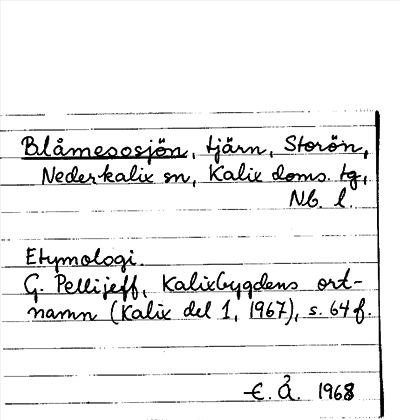 Blåmesosjön, tjärn, Storön,
Nederkalix sn, Kalix doms. tg,
Nb. l.
Etymologi.
G. Pellijeff, Kalixbygdens ort-
namn (Kalix del 1, 1967), s. 64 f.
E. Å. 1968